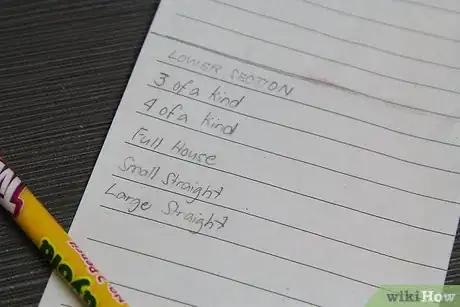 LOWER SECTION
3 of a kind
4 of a kind
Full House
Small Straight
Large Straight
No. 2 Pencil
Crayola
wikiHow